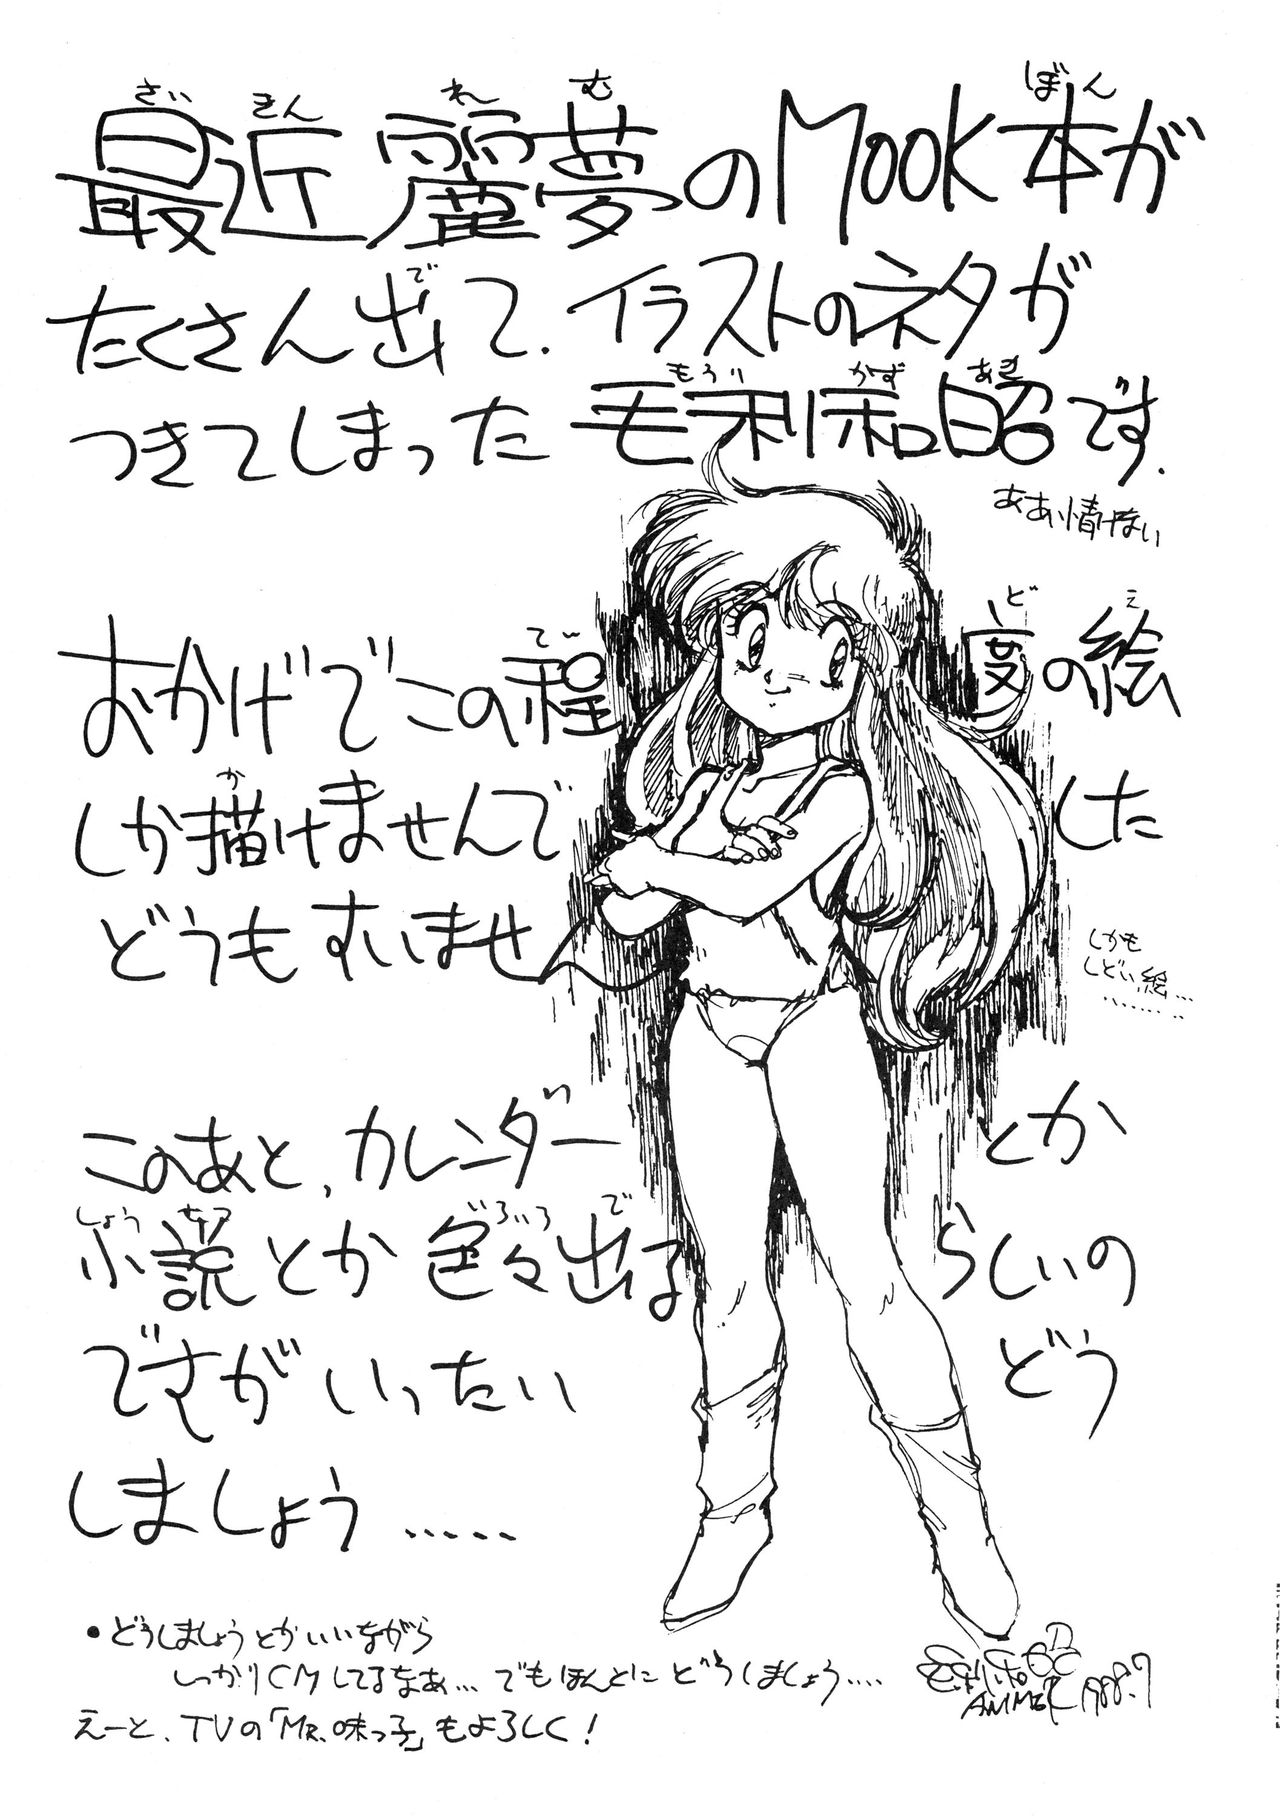 最近麗夢のMOOK本が
たくさん出て、イラストのネタが
つきてしまった毛利和昭です.
ああ、情けない
おかげでこの程度の絵
しか描けませんでした
どうもすいませ
しかも
しどい絵...
このあと、カレンダーとか
小説とか色々出るらしいの
ですがいったいどう
しましょう.....
・どうしましょうとかいいながら
しっかりCMしてるなあ... でもほんとにどうしましょう....
えーと、TVの「MR.味っ子」もよろしく!
1988.7